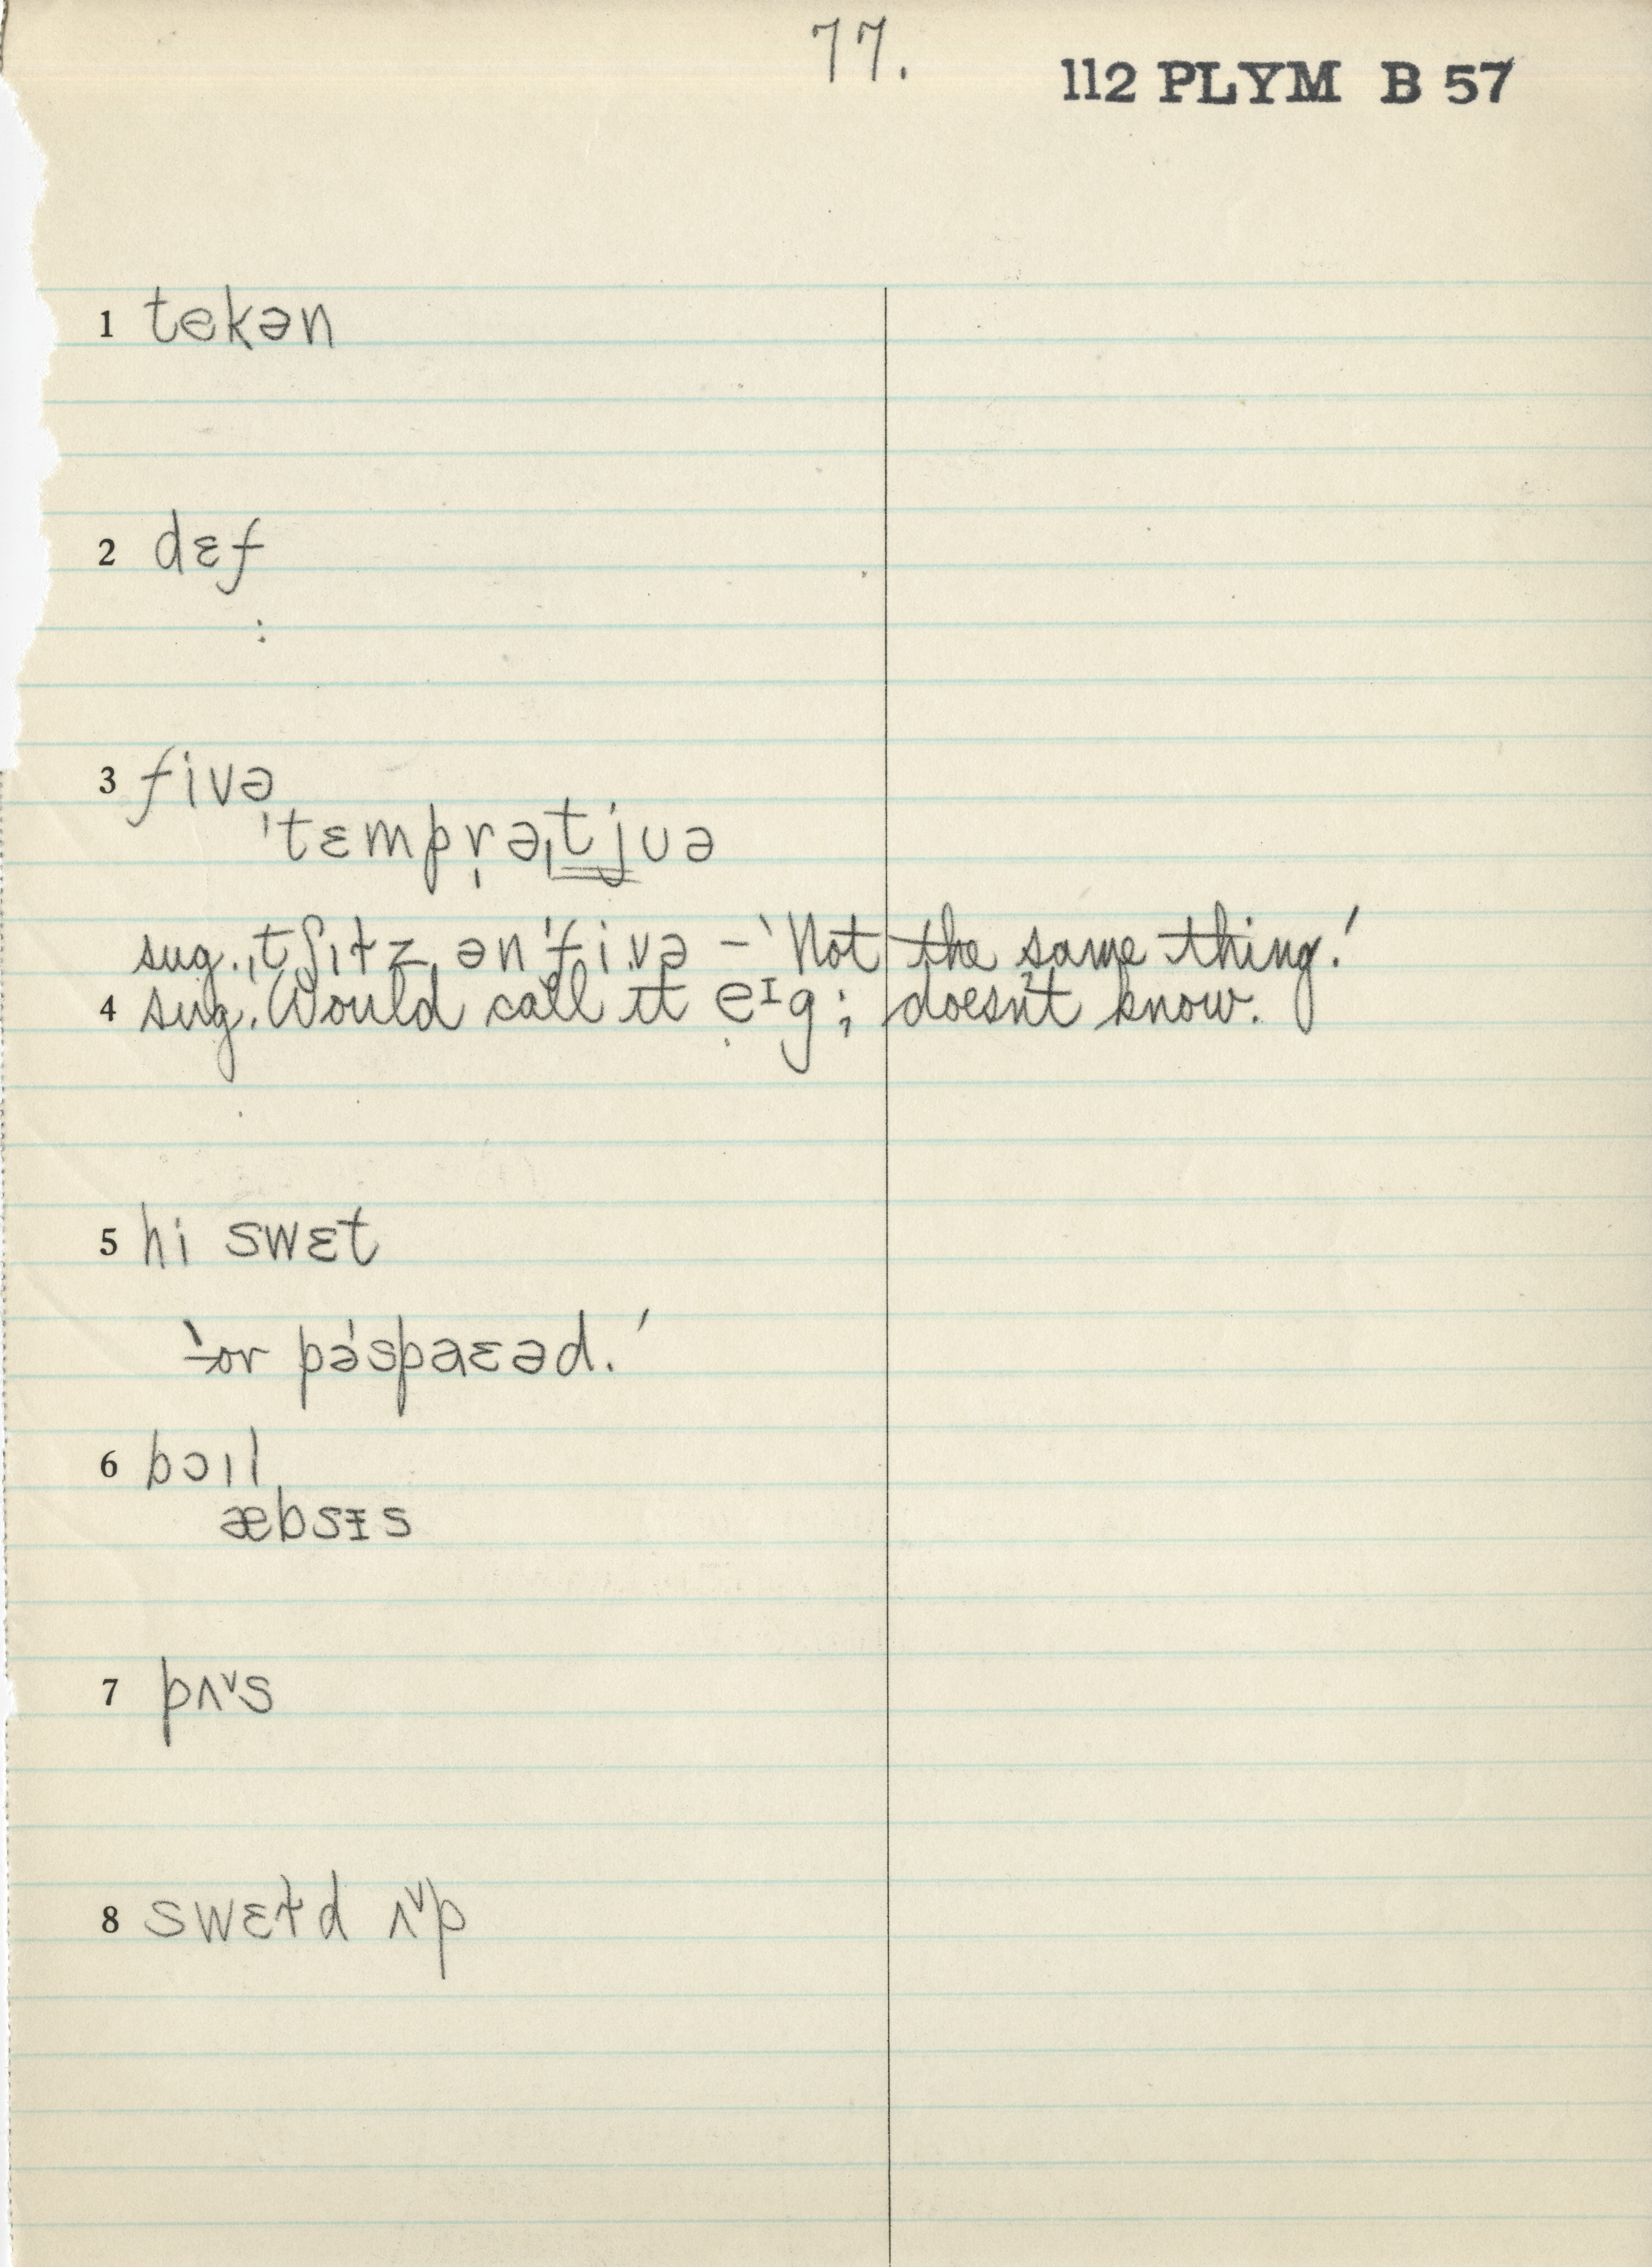 77.
112 PLYM B 57
1 tekən
2 dɛf
:
3 fivə
ˈtɛmprə̩ˌtjʊə
sug. ˌtʃɪɫz ənˈfivə – 'Not the same thing.'
4 sug. Would call it eᴵg; doesn't know.
5 hi swɛt
'or pəˈspaɛəd.'
6 bɔɪl
æbsɪs
7 pʌ˅s
8 swɛt̵d ʌ˅p